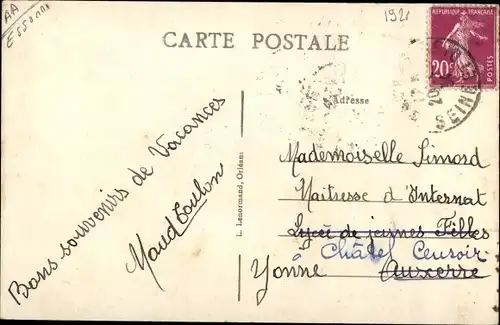 AA
1921
CARTE POSTALE
RÉPUBLIQUE FRANÇAISE
20c
POSTES
SEINE
Adresse
Bons souvenirs de Vacances
Maud Toulon
L. Lenormand, Orléans
Mademoiselle Simord
Maitresse d'Internat
Lycée de jeunes Filles
Châtel Censoir
Yonne Auxerre